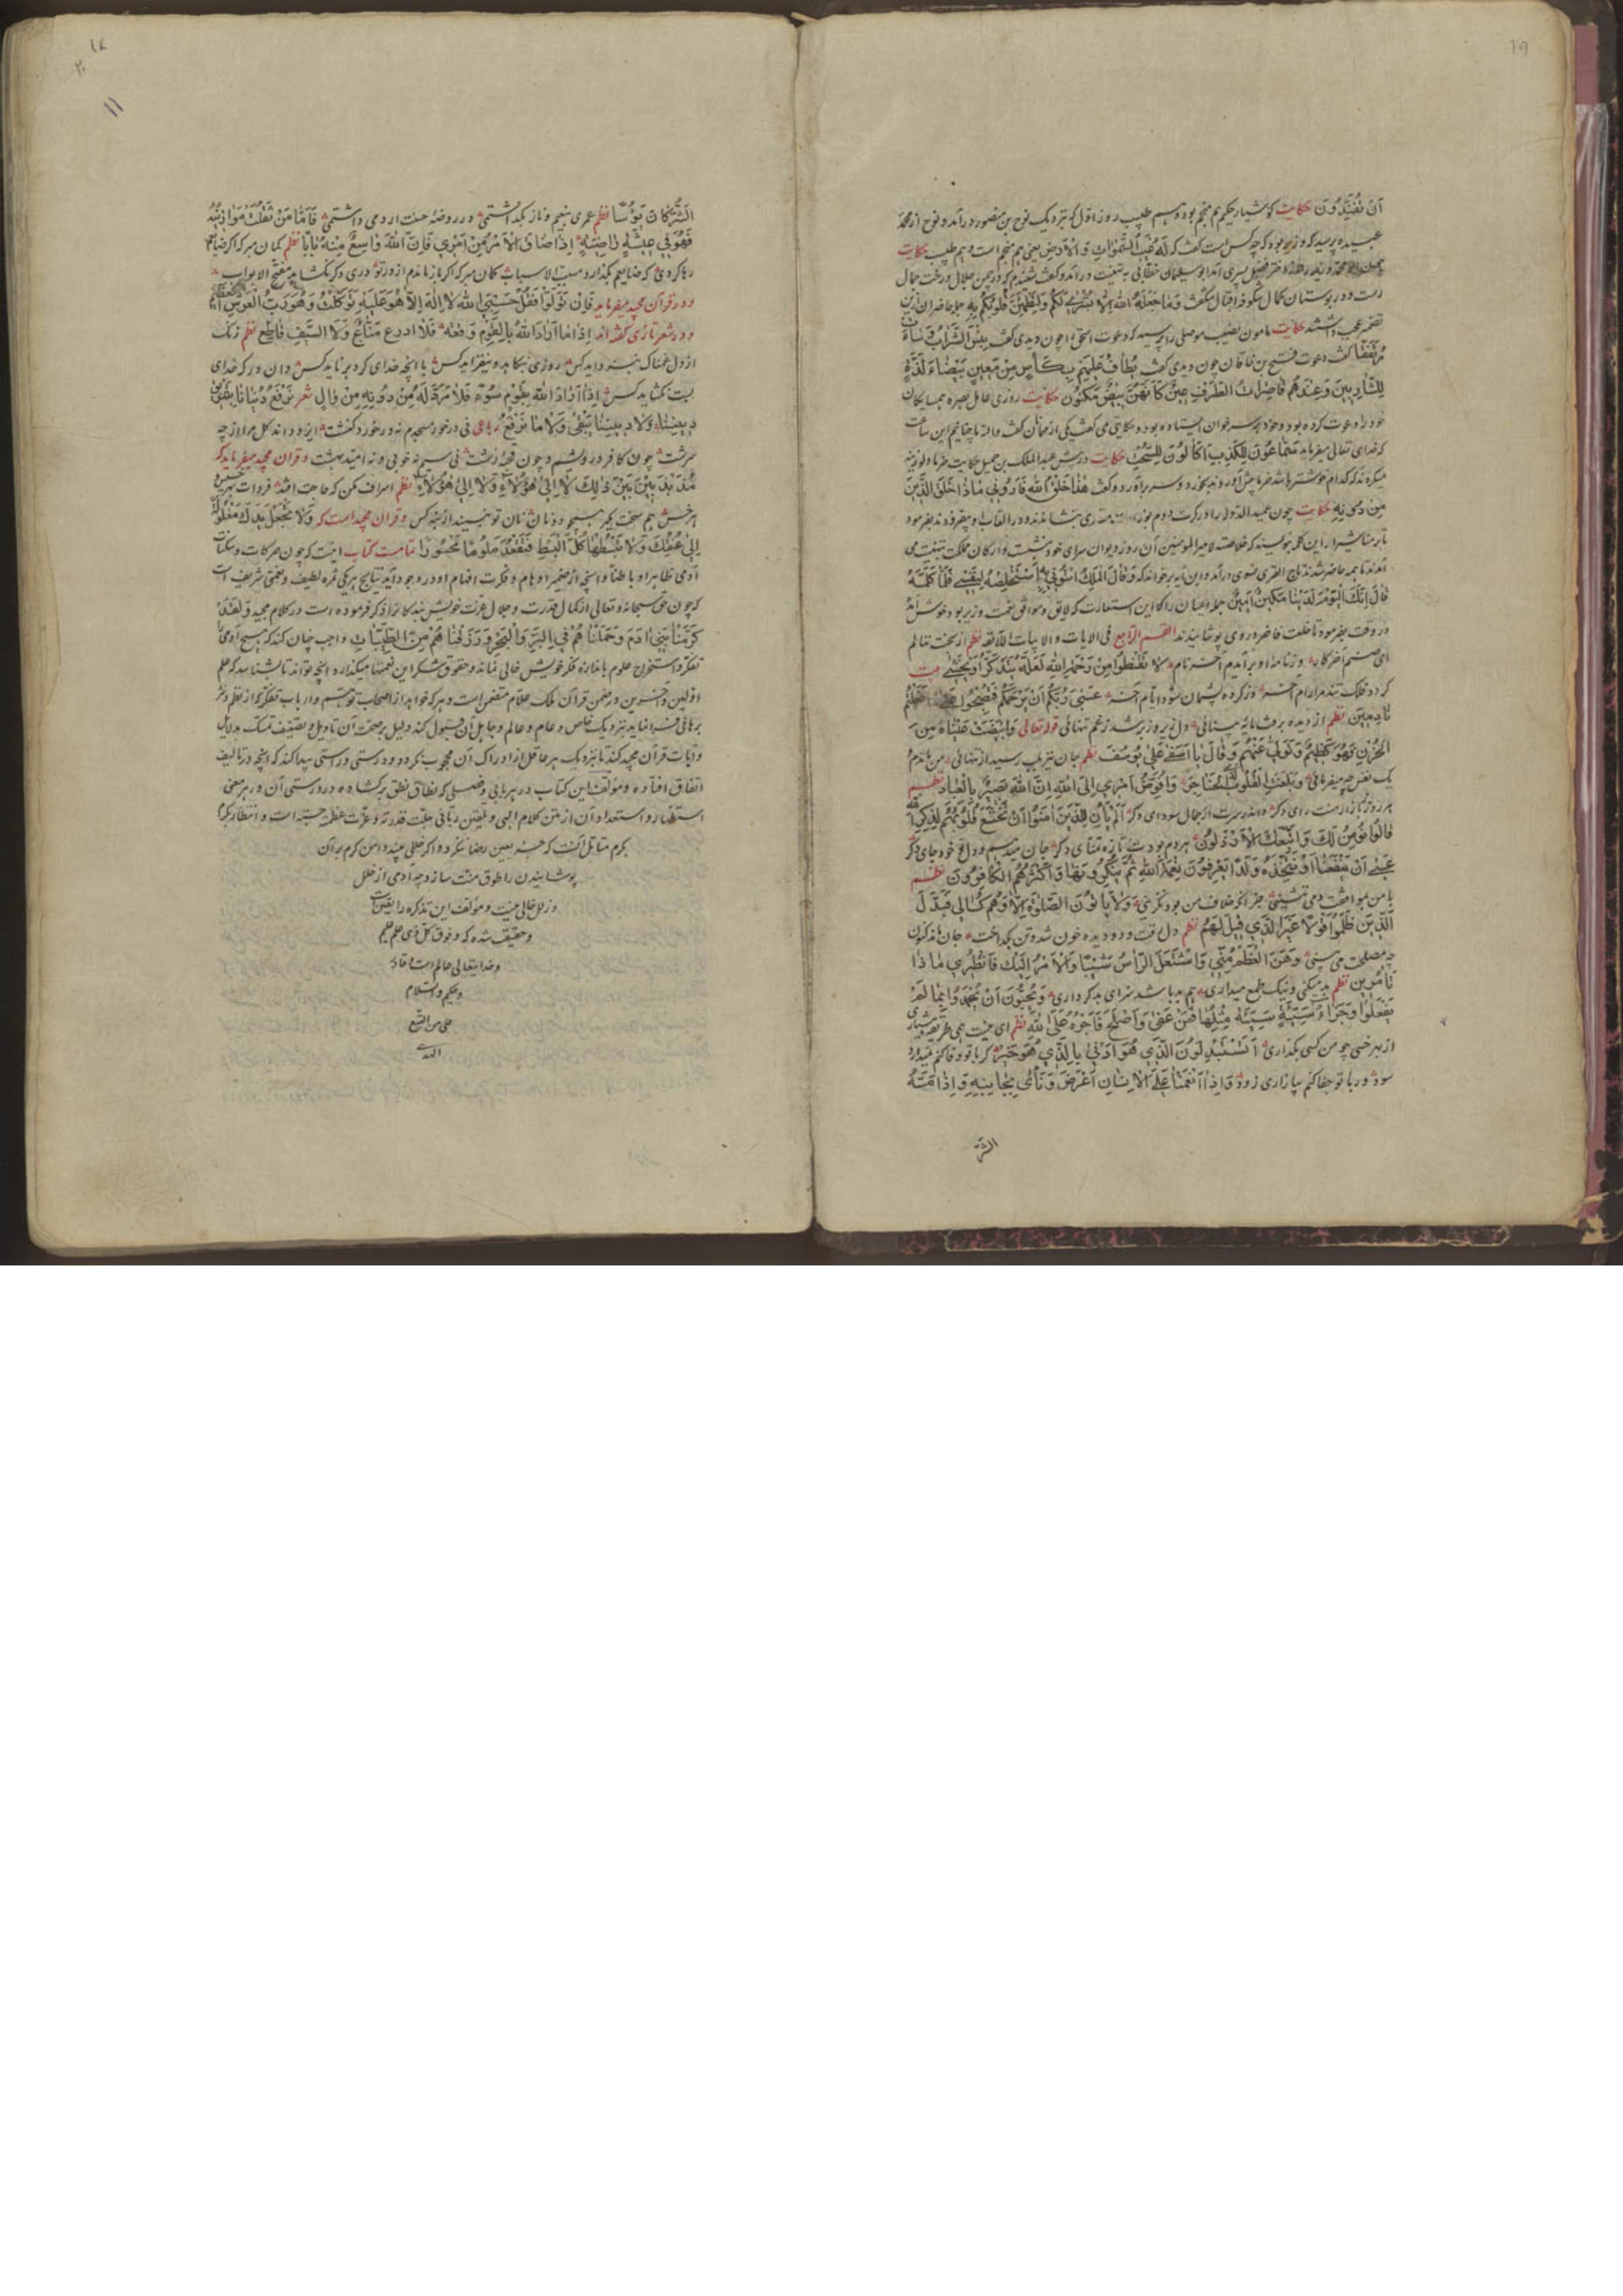 ۱۹
آن تُفَنِّدُونَ حکایت کوشیار حکیم هم منجم بود و هم طبیب روز اول که بنزدیک نوح بن منصور درآمد و نوح از محمد
عبیده پرسید که وزیر بود که چه کس است گفت که لَهُ غَیْبُ السَّمٰوَاتِ وَالْاَرْضِ یعنی هم منجم است و هم طبیب حکایت
دختر فضل پسری آمد ابو سلیمان خطابی به تهنیت درآمد و گفت شنیدم که در چمن جلال درخت جمال
رست و در بوستان کمال شکوفه اقبال شکفت وَمَا جَعَلَهُ اللهُ اِلَّا بُشْرٰی لَکُمْ وَلِتَطْمَئِنَّ قُلُوبُکُمْ بِهِ جمله حاضران ازین
تضمین عجب داشتند حکایت مامون نصیب موصلی را پرسید که دعوت اسحق را چون دیدی گفت بِئْسَ الشَّرَابُ وَسَاءَتْ
مُرْتَفَقًا گفت دعوت فتح بن خاقان چون دیدی گفت یُطَافُ عَلَیْهِمْ بِکَأْسٍ مِنْ مَعِینٍ بَیْضَاءَ لَذَّةٍ
لِلشَّارِبِینَ وَعِنْدَهُمْ قَاصِرَاتُ الطَّرْفِ عِینٌ کَاَنَّهُنَّ بَیْضٌ مَکْنُونٌ حکایت روزی عامل بصره همسایکان
خود را دعوت کرده بود و خود بر سر خوان استاده بود و حکایتی می گفت یکی از مهمانان گفت والله ما چنانیم این ساعت
که خدای تعالی میفرماید سَمَّاعُونَ لِلْکَذِبِ اَکَّالُونَ لِلسُّحْتِ حکایت در پیش عبد الملک بن جمیل حکایت خرما و لوزینه
میکردند که کدام خوشتر باشد خرما پیش آوردند بخورد و سر برآورد و گفت هٰذَا خَلْقُ اللهِ فَاَرُونِی مَاذَا خَلَقَ الَّذِینَ
مِنْ دُونِهِ حکایت چون عمید الدوله را در کرت دوم بوزارت مستظهری بنشاندند و در القاب او میفزودند بفرمود
تا بر مناشیر او این کلمه بنویسند که خلاصته لامیر المومنین آن روز دیوان سرای خود نشست و ارکان مملکت بتهنیت می
آمدند تا همه حاضر شدند تاج القری نسوی درآمد و این آیه برخواند که وَقَالَ الْمَلِکُ ائْتُونِی بِهِ اَسْتَخْلِصْهُ لِنَفْسِی فَلَمَّا کَلَّمَهُ
قَالَ اِنَّکَ الْیَوْمَ لَدَیْنَا مَکِینٌ اَمِینٌ جمله اعیان را که این استعارت که لایق و موافق بخت وزیر بود خوش آمد
در وقت بفرمود تا خلعت فاخر در وی پوشانیدند القسم الرابع فی الایات والابیات اللائقه نظم از سخت تنالم
ای صنم آخر کار وز نامه او برآیدم آخر نام لا تَقْنَطُوا مِنْ رَحْمَةِ اللهِ لَعَلَّهُ یَتَذَکَّرُ اَوْ یَخْشٰی بیت
کردد فلک تند مرا رام آخر وز کرده پشیمان شود ایام آخر عَسٰی رَبُّکُمْ اَنْ یَرْحَمَکُمْ فَتُصْبِحُوا عَلٰی مَا فَعَلْتُمْ
نَادِمِینَ نظم از دیده برفت مایه بینائی دل زیر و زبر شد ز غم تنهائی قوله تعالی وَابْیَضَّتْ عَیْنَاهُ مِنَ
الْحُزْنِ فَهُوَ کَظِیمٌ وَتَوَلّٰی عَنْهُمْ وَقَالَ یَا اَسَفٰی عَلٰی یُوسُفَ نظم جان نیز بلب رسید از تنهائی من ماندم
یک نفس چه میفرمائی وَبَلَغَتِ الْقُلُوبُ الْحَنَاجِرَ وَاُفَوِّضُ اَمْرِی اِلَی اللهِ اِنَّ اللهَ بَصِیرٌ بِالْعِبَادِ نظم
هر روز بتازار منت رای دکر واندر سرت از جمال سودای دکر اَلَمْ یَأْنِ لِلَّذِینَ اٰمَنُوا اَنْ تَخْشَعَ قُلُوبُهُمْ لِذِکْرِ اللهِ
قَالُوا اَنُؤْمِنُ لَکَ وَاتَّبَعَکَ الْاَرْذَلُونَ هر دم بودت تازه تمنای دکر جان میدهم و دل تو خود جای دکر
عَسٰی اَنْ یَنْفَعَنَا اَوْ نَتَّخِذَهُ وَلَدًا یَعْرِفُونَ نِعْمَةَ اللهِ ثُمَّ یُنْکِرُونَهَا وَاَکْثَرُهُمُ الْکَافِرُونَ نظم
با من بموافقت دمی ننشینی جز آنکه خلاف من بود نکزینی وَلَا یَأْتُونَ الصَّلٰوةَ اِلَّا وَهُمْ کُسَالٰی فَبَدَّلَ
الَّذِینَ ظَلَمُوا قَوْلًا غَیْرَ الَّذِی قِیلَ لَهُمْ نظم دل رفت و دو دیده خون شد و تن بگداخت جان ماند کنون
چه مصلحت می بینی وَهَنَ الْعَظْمُ مِنِّی وَاشْتَعَلَ الرَّأْسُ شَیْبًا وَالْاَمْرُ اِلَیْکِ فَانْظُرِی مَاذَا
تَأْمُرِینَ نظم بد میکنی و نیک طمع میداری هم بد باشد سزای بد کرداری وَیُحِبُّونَ اَنْ یُحْمَدُوا بِمَا لَمْ
یَفْعَلُوا وَجَزَاءُ سَیِّئَةٍ سَیِّئَةٌ مِثْلُهَا فَمَنْ عَفٰی وَاَصْلَحَ فَاَجْرُهُ عَلَی اللهِ نظم ای
از بهر خسی چو من کسی بگذاری اَتَسْتَبْدِلُونَ الَّذِی هُوَ اَدْنٰی بِالَّذِی هُوَ خَیْرٌ کر با تو وفا کنم
سود ور با تو جفا کنم بیازاری زود وَاِذَا اَنْعَمْنَا عَلَی الْاِنْسَانِ اَعْرَضَ وَنَأٰی بِجَانِبِهِ وَاِذَا مَسَّهُ
الشَّرُّ
۲۰
۱۱
الشَّرُّ کَانَ یَؤُسًا نظم عمری بنعیم و ناز بگذاشتمی در روضه جنت ار دمی داشتمی فَاَمَّا مَنْ ثَقُلَتْ مَوَازِینُهُ
فَهُوَ فِی عِیشَةٍ رَاضِیَةٍ اِذَا ضَاقَ الْاَمْرُ مِنْ اَمْرِی فَاِنَّ اللهَ وَاسِعٌ مِنْهُ بَابًا نظم کمان مبر که اکر ضایعم
رها کردی که ضایعم بگذارد مسبب الاسباب کمان مبر که اکر باز ماندم از در تو دری دکر نکشاید مفتح الابواب
و در قرآن مجید میفرماید فَاِنْ تَوَلَّوْا فَقُلْ حَسْبِیَ اللهُ لَا اِلٰهَ اِلَّا هُوَ عَلَیْهِ تَوَکَّلْتُ وَهُوَ رَبُّ الْعَرْشِ الْعَظِیمِ
و در شعر تازی گفته اند اِذَا مَا اَرَادَ اللهُ بِالْقَوْمِ وَقْعَةً فَلَا ادرع مَنَّاعٌ وَلَا السَّیْفُ قَاطِعٌ نظم زنک
از دل غمناک نزداید کس روزی بنکاهد و نیفزاید کس با آنچه خدای کرد برناید کس وان در که خدای
بست نکشاید کس اِذَا اَرَادَ اللهُ بِقَوْمٍ سُوْءً فَلَا مَرَدَّ لَهُ وَمَا لَهُمْ مِنْ دُونِهِ مِنْ وَالٍ شعر نُرَقِّعُ دُنْیَانَا بِتَمْزِیقِ
دِینِنَا فَلَا دِینُنَا یَبْقٰی وَلَا مَا نُرَقِّعُ رباعی نی درخور مسجدم نه درخورد کنشت ایزد داند کل مرا از چه
سرشت چون کافر درویشم و چون قحبه زشت نی سیم نه خوبی و نه امید بهشت و قرآن مجید میفرماید که
مُذَبْذَبِینَ بَیْنَ ذٰلِکَ لَا اِلٰی هٰؤُلَاءِ وَلَا اِلٰی هٰؤُلَاءِ نظم اسراف مکن که حاجت افتد فردات بهر
هم سخت مکیر دو نان نان تو نه بیند از پس کس و قران مجید است که وَلَا تَجْعَلْ یَدَکَ مَغْلُولَةً
اِلٰی عُنُقِکَ وَلَا تَبْسُطْهَا کُلَّ الْبَسْطِ فَتَقْعُدَ مَلُومًا مَحْسُورًا تمامت کتاب اینست که چون حرکات و سکنات
آدمی ظاهرا و باطنا و آنچه از ضمیر اوهام و فکرت افهام او در وجود آید نتایج هر یکی ثمره لطیف و نعمتی شریف است
که چون حق سبحانه و تعالی از کمال قدرت و جلال عزت خویش بندکانرا ذکر فرموده است در کلام مجید وَلَقَدْ
کَرَّمْنَا بَنِی اٰدَمَ وَحَمَلْنَاهُمْ فِی الْبَرِّ وَالْبَحْرِ وَرَزَقْنَاهُمْ مِنَ الطَّیِّبَاتِ واجب چنان کند که هیچ آدمی از
تفکر و استخراج علوم باندازه فکر خویش خالی نماند و حقوق شکر این نعمتها میکذارد و آنچه تواند تا بشناسد که علم
اولین و آخرین در ضمن قرآن ملک علام متضمن است و هر که خواهد از اصحاب توهم و ارباب تفکر که از نظم و نثر
برهانی فرا نماید بنزدیک خاص و عام و عالم و جاهل آن قبول کند دلیل بر صحت آن تاویل و تصنیف تمسک بدلایل
و آیات قرآن مجید کند تا بنزدیک هر عاقل از ادراک آن محجوب نکردد و درستی و راستی پیدا کند که آنچه در تالیف
اتفاق افتاده و مؤلف این کتاب در هر بابی و فصلی که نطاق نطق برکشاده در درستی آن و در هر معنی
استظهار و استعداد آن از متن کلام الهی و تلقین ربانی جلت قدرته و عزت عظمته جسته است و انتظار بکرم
بکرم متامل آنست که بعین رضا نکرد و اکر خللی بیند دامن کرم بر آن
پوشانیدن را طوق منت سازد چه آدمی از خلل
و زلل خالی نیست و مؤلف این تذکره را یقین است
و حقیقت شده که و فوق کل ذی علم علیم
و خدایتعالی عالم است و قادر
و حکیم والسلام
علی من اتبع
الهدی